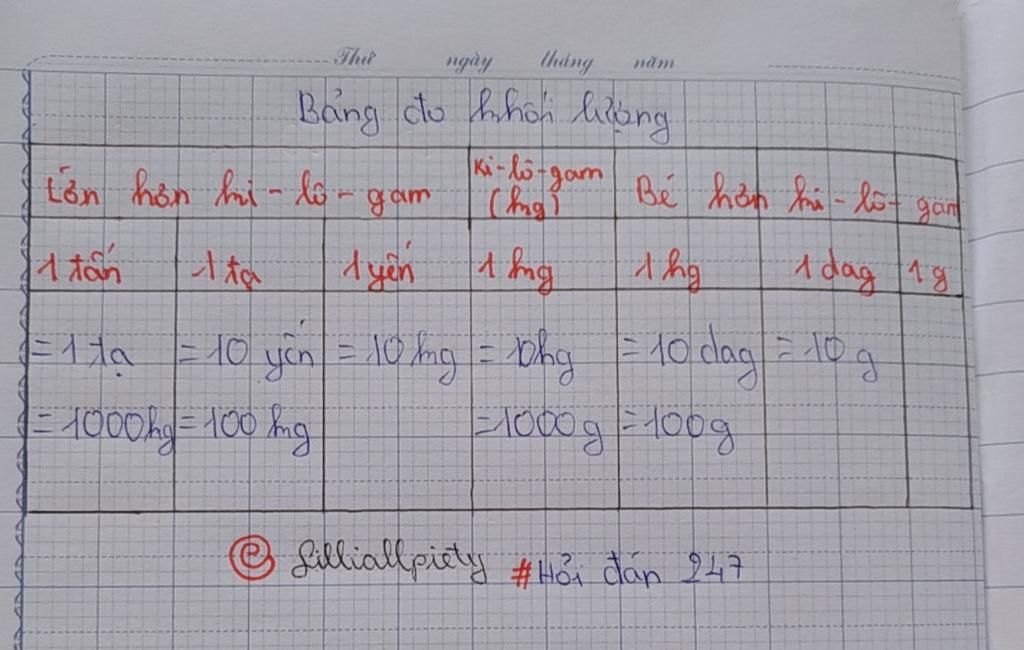 Thứ ngày tháng năm
Bảng đo khối lượng
Lớn hơn ki-lô-gam Ki-lô-gam (kg) Bé hơn ki-lô-gam
1 tấn 1 tạ 1 yến 1 kg 1 hg 1 dag 1 g
=1 tạ =10 yến =10 kg =10hg =10 dag =10 g
=1000kg =100 kg =1000g =100g
@ filliallpiety #Hỏi đán 247